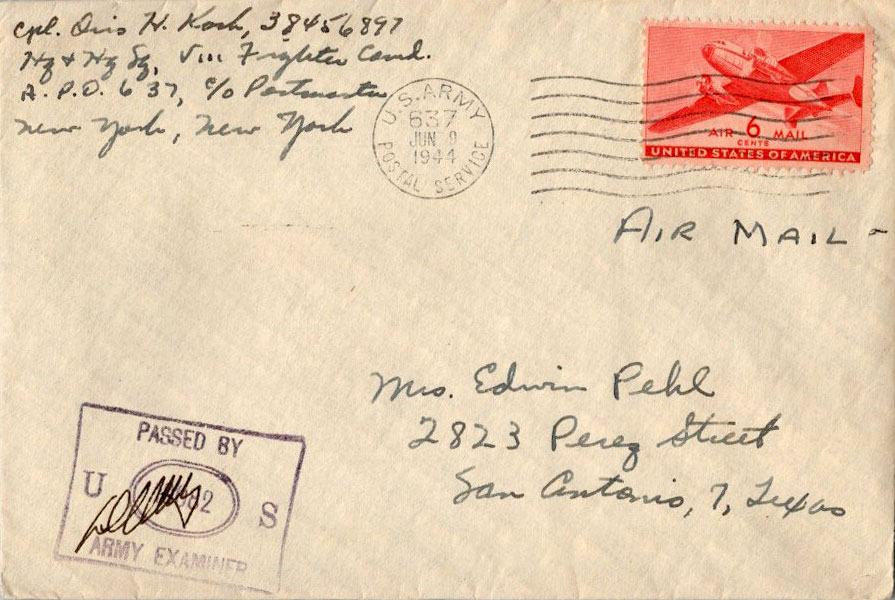 Cpl. Otis H. Kosh, 38456897
Hq & Hq Sq, VIII Fighter Comd.
A. P. O. 637, c/o Postmaster
New York, New York
U.S. ARMY
637
JUN 9
1944
POSTAL SERVICE
AIR 6 MAIL
CENTS
UNITED STATES OF AMERICA
AIR MAIL -
Mrs. Edwin Pehl
2823 Perez Street
San Antonio, 7, Texas
PASSED BY
U S
ARMY EXAMINER